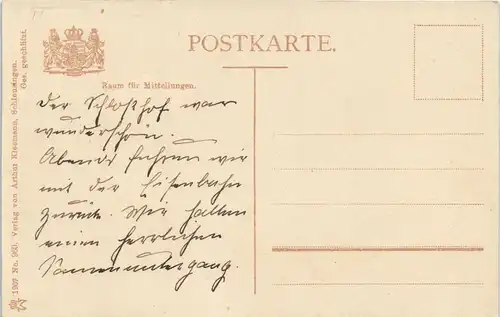 POSTKARTE.
Raum für Mitteilungen.
Der Schloßhof war
wunderschön.
Abends fuhren wir
mit der Eisenbahn
zurück. Wir hatten
einen herrlichen
Sonnenuntergang.
1909 No. 960. Verlag von Arthur Kleemann, Schleusingen.
Ges. geschützt.